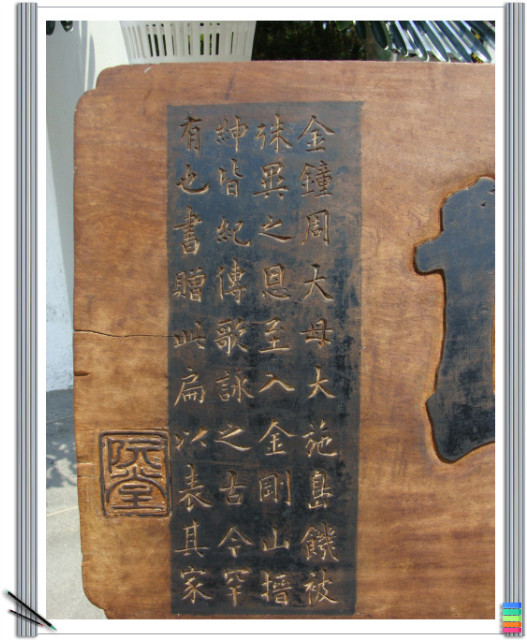 金鐘周大母大施島饑被
殊異之恩至入金剛山搢
紳皆紀傳歌詠之古今罕
有也書贈此扁以表其家
阮堂